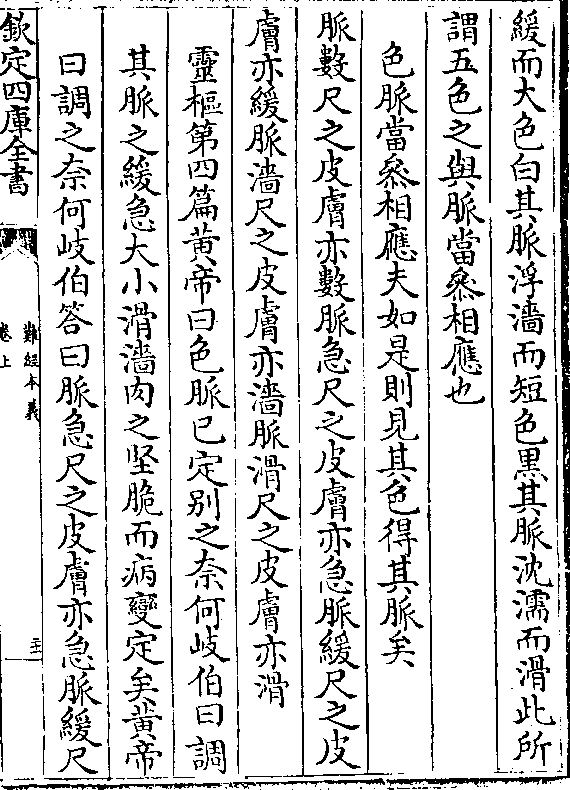 緩而大色白其脈浮濇而短色黒其脈沈濡而滑此所
謂五色之與脈當叅相應也
色脈當叅相應夫如是則見其色得其脈矣
脈數尺之皮膚亦數脈急尺之皮膚亦急脈緩尺之皮
膚亦緩脈濇尺之皮膚亦濇脈滑尺之皮膚亦滑
靈樞第四篇黃帝曰色脈已定别之奈何岐伯曰調
其脈之緩急大小滑濇肉之堅脆而病變定矣黃帝
曰調之奈何岐伯答曰脈急尺之皮膚亦急脈緩尺
欽定四庫全書
難經本義
卷上